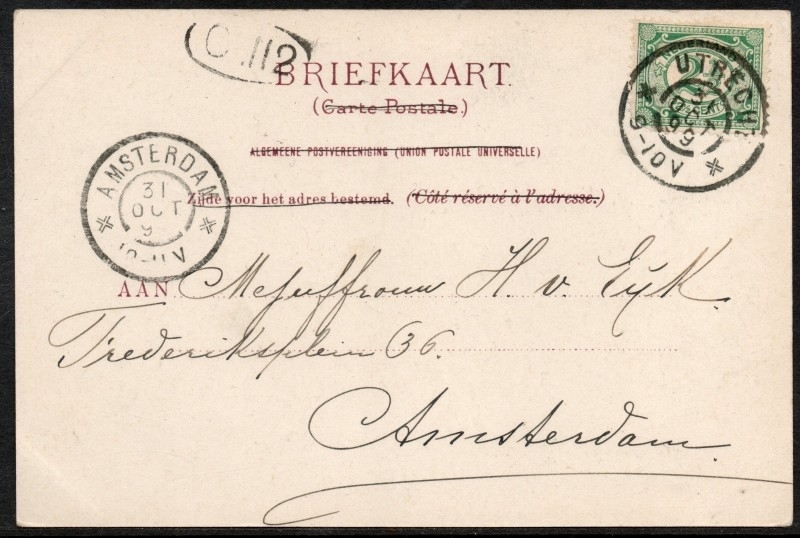 C.112
BRIEFKAART.
(Carte Postale.)
ALGEMEENE POSTVEREENIGING (UNION POSTALE UNIVERSELLE)
Zijde voor het adres bestemd. (Côté réservé à l'adresse.)
NEDERLAND
UTRECHT
31
OCT
99
9-10V
AMSTERDAM
31
OCT
9
10-11V
AAN Mejuffrouw H. v. Eijk.
Frederiksplein 36.
Amsterdam.